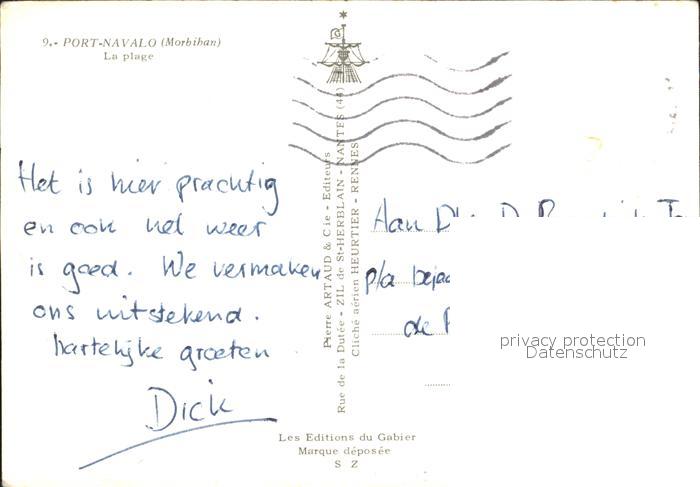 9.- PORT-NAVALO (Morbihan)
La plage
Het is hier prachtig
en ook het weer
is goed. We vermaken
ons uitstekend.
hartelijke groeten
Dick
Pierre ARTAUD & Cie - Editeurs
Rue de la Dutée - ZIL de St-HERBLAIN - NANTES (44)
Cliché aérien HEURTIER - RENNES
Aan
p/a
de
privacy protection
Datenschutz
Les Editions du Gabier
Marque déposée
S Z